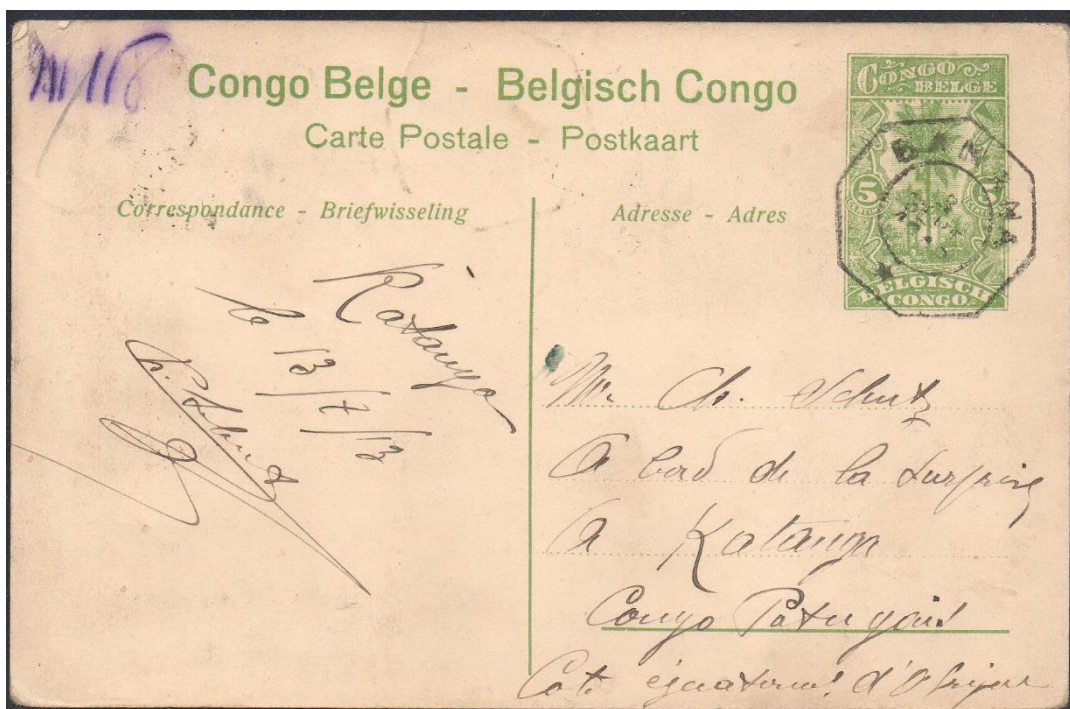 Congo Belge - Belgisch Congo
Carte Postale - Postkaart
Correspondance - Briefwisseling
Adresse - Adres
CONGO
BELGE
5
BELGISCH
CONGO
BANANA
Katanga
le 13/7/13
Mr. Ch. Schutz
A bord de la Surprise
A Katanga
Congo Portugais
Cote d'Afrique